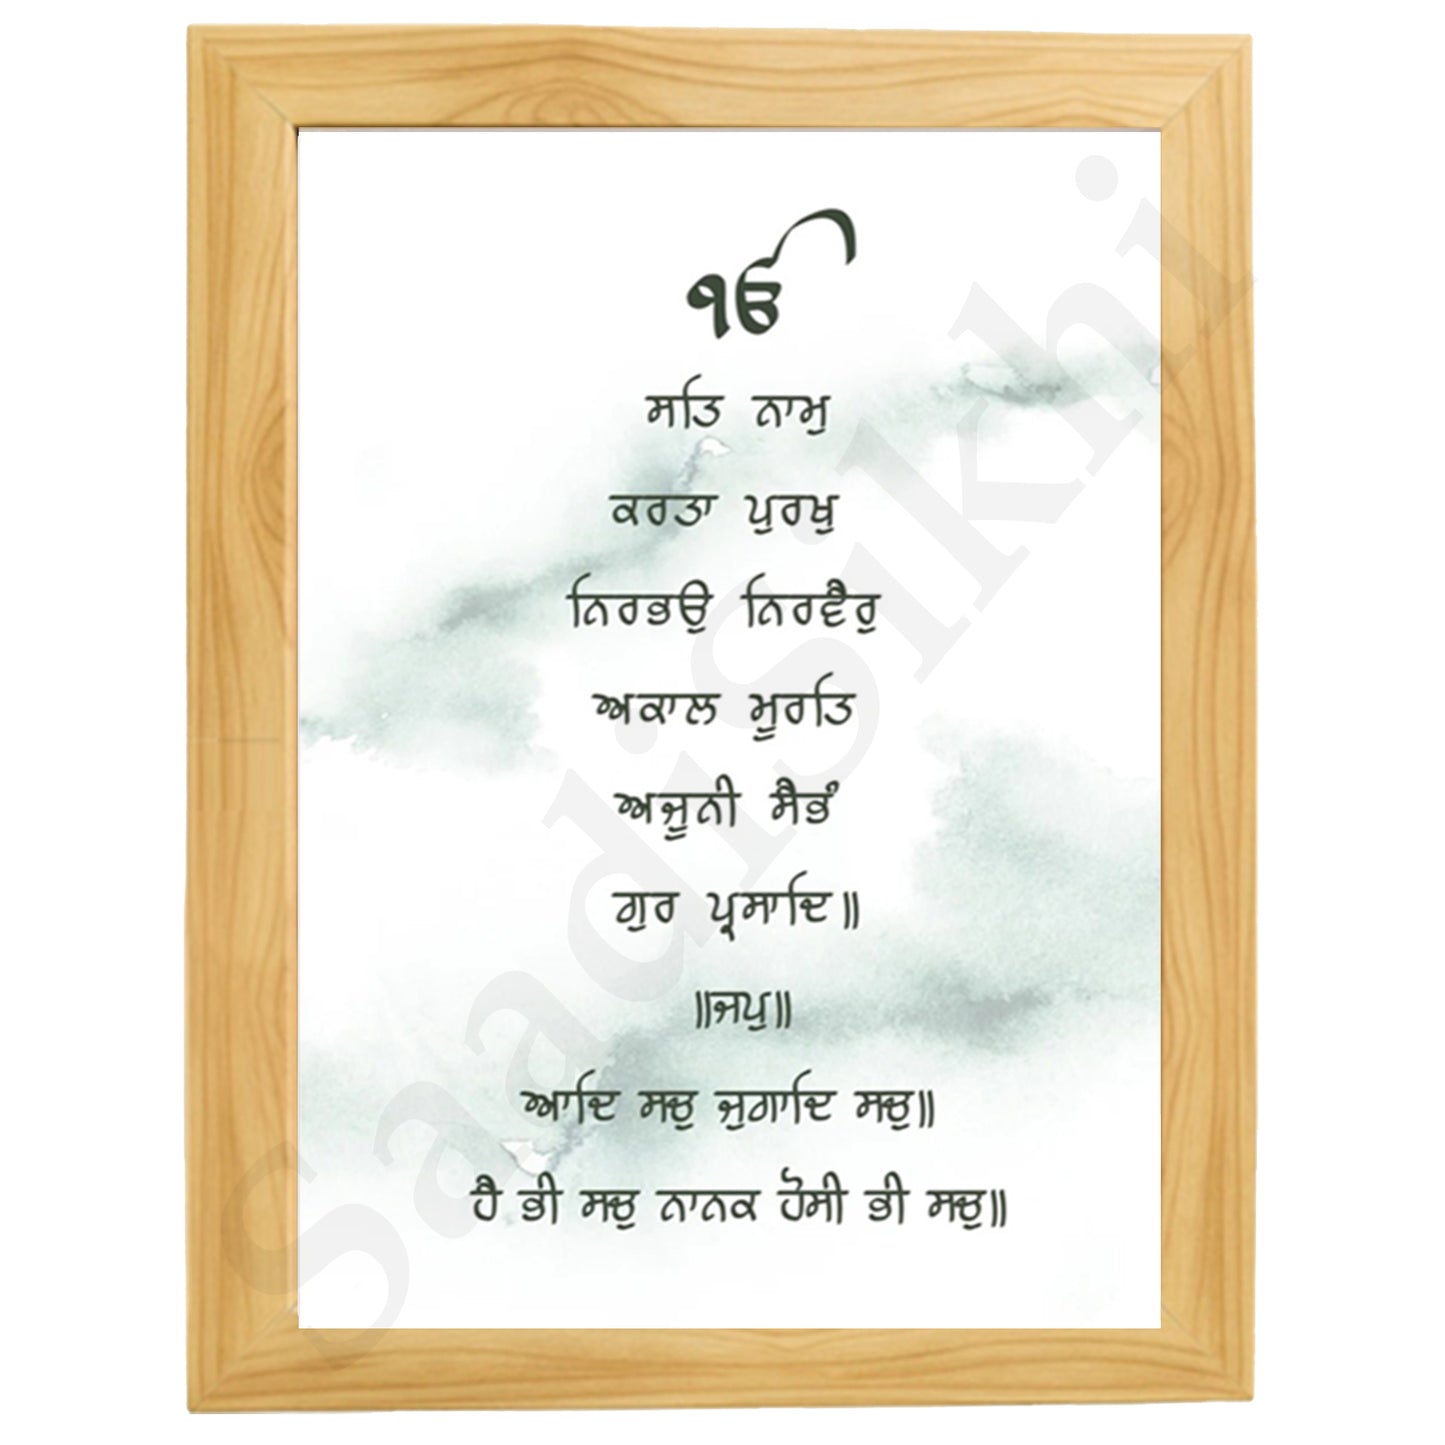 ੴ
ਸਤਿ ਨਾਮੁ
ਕਰਤਾ ਪੁਰਖੁ
ਨਿਰਭਉ ਨਿਰਵੈਰੁ
ਅਕਾਲ ਮੂਰਤਿ
ਅਜੂਨੀ ਸੈਭੰ
ਗੁਰ ਪ੍ਰਸਾਦਿ॥
॥ਜਪੁ॥
ਆਦਿ ਸਚੁ ਜੁਗਾਦਿ ਸਚੁ॥
ਹੈ ਭੀ ਸਚੁ ਨਾਨਕ ਹੋਸੀ ਭੀ ਸਚੁ॥
SaadiSikhi